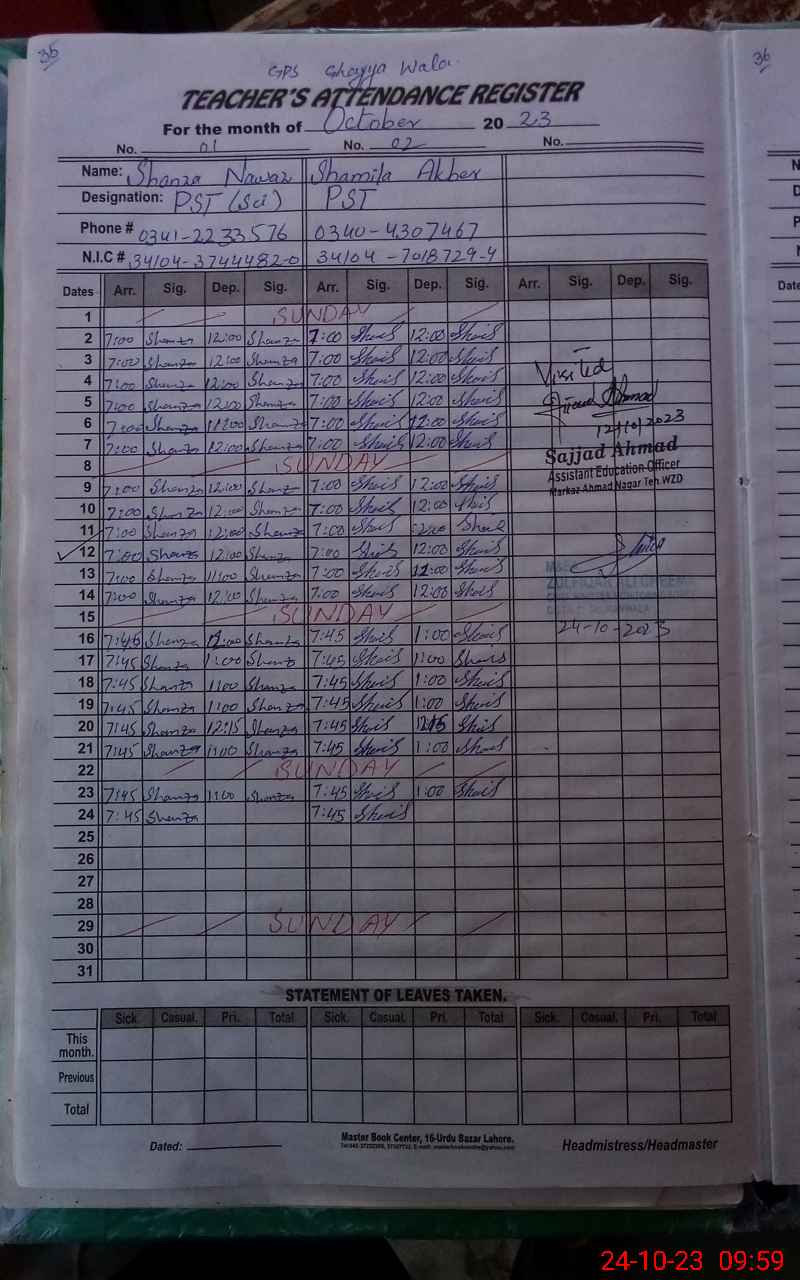 36
36
GPS Ghayya Wala
TEACHER'S ATTENDANCE REGISTER
For the month of October 2023
No. 01 No. 02 No.
Name: Shanza Nawaz Shamila Akber
Designation: PST (Sci) PST
Phone # 0341-2233576 0340-4307467
N.I.C # 34104-3744482-0 34104-7018729-4
Dates Arr. Sig. Dep. Sig. Arr. Sig. Dep. Sig. Arr. Sig. Dep. Sig.
1 SUNDAY
2 7:00 Shanza 12:00 Shanza 7:00 12:00
3 7:00 Shanza 12:00 Shanza 7:00 12:00
4 7:00 Shanza 12:00 Shanza 7:00 12:00
5 7:00 Shanza 12:00 Shanza 7:00 12:00
6 7:00 Shanza Shanza 7:00
7 7:00 Shanza 12:00 Shanza 7:00 12:00
8 SUNDAY
9 7:00 Shanza 12:00 Shanza 7:00 12:00
10 7:00 Shanza 12:00 Shanza 7:00 12:00
11 7:00 Shanza 12:00 Shanza 7:00
12 7:00 Shanza 12:00 Shanza 7:00 12:00
13 7:00 Shanza 11:00 Shanza 7:00
14 7:00 Shanza 12:00 Shanza 7:00 12:00
15 SUNDAY
16 7:45 Shanza Shanza 7:45 1:00
17 7:45 Shanza 1:00 Shanza 7:45 1:00
18 7:45 Shanza 1:00 Shanza 7:45 1:00
19 7:45 Shanza 1:00 Shanza 7:45 1:00
20 7:45 Shanza 12:15 Shanza 7:45 12:15
21 7:45 Shanza 1:00 Shanza 7:45 1:00
22 SUNDAY
23 7:45 Shanza 1:00 Shanza 7:45 1:00
24 7:45 Shanza 7:45
25
26
27
28
29 SUNDAY
30
31
Visited
12/10/2023
Sajjad Ahmad
Assistant Education Officer
Markaz Ahmad Nagar Teh WZD
24-10-2023
STATEMENT OF LEAVES TAKEN.
Sick. Casual. Pri. Total Sick. Casual. Pri. Total Sick. Casual. Pri. Total
This month.
Previous
Total
Dated:
Master Book Center, 16-Urdu Bazar Lahore.
Headmistress/Headmaster
Date
24-10-23 09:59